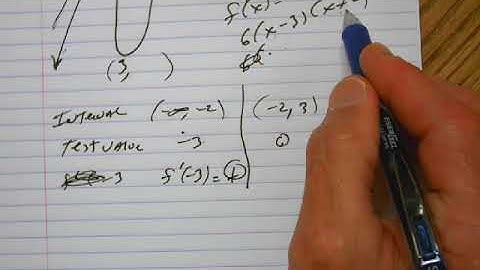 f(x)=
6(x-3)(x+2)
(3,    )
Interval (-∞,-2) (-2,3)
Test value -3 0
f'(-3)=+